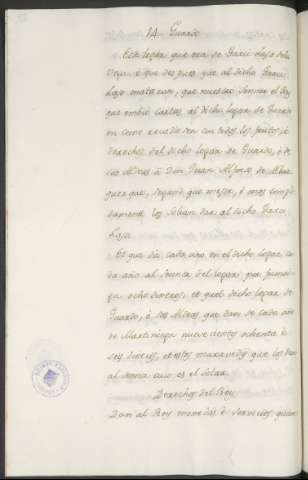 14. Guardo
Este logar que era de Garci Laso de la
Vega, é que despues que al dicho Garci
Laso mataron, que nuestro Sennor el Rey
que embió cartas al dicho logar de Guardo
en como recudiesen con todos los fruitos, é
derechos del dicho logar de Guardo, é de
sus Aldeas á Don Juan Alfonso de Albur
querque, segund que mejor, é mas cumpli
damente los solian dar al dicho Garci
Laso.
Et que dá cada uno en el dicho logar ca
da año al Sennor del logar por
ocho dineros, et que el dicho logar de
Guardo, é sus Aldeas que dan de cada año
de Martiniega nuevecientos ochenta é
seys dineros, et estos maravedis que los dan
al Sennor cuio es el Solar.
Derechos del Rey
Dan al Rey monedas é servicios quando